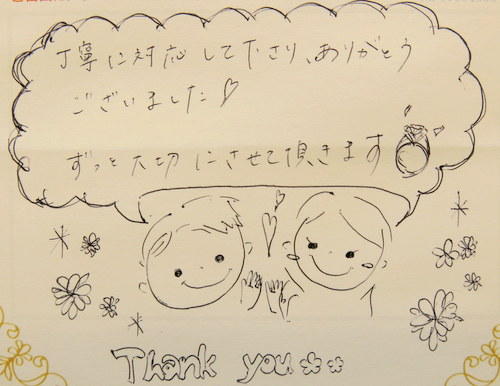 丁寧に対応して下さり、ありがとう
ございました♡
ずっと大切にさせて頂きます
Thank you